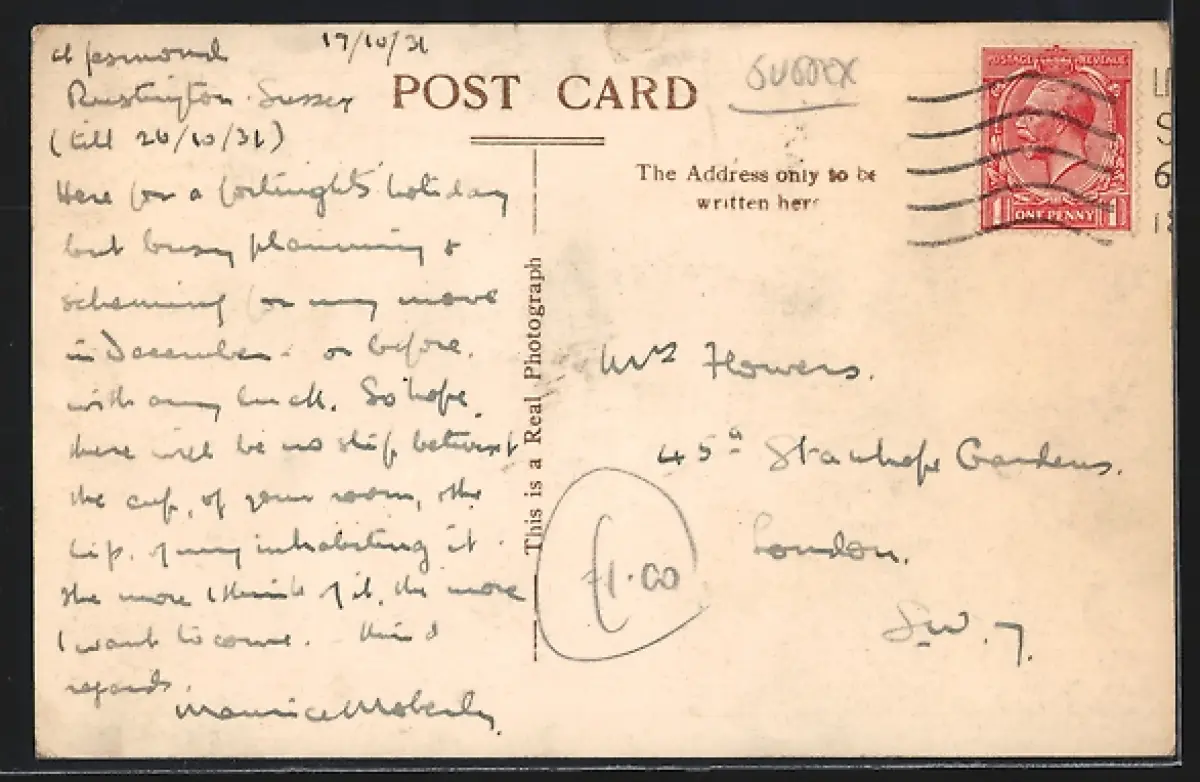 17/10/31
Rustington. Sussex
(till 26/10/31)
Here for a fortnight's holiday
but busy planning &
scheming for my move
in December - or before,
with any luck. So hope
there will be no slip betwixt
the cup, of your room, the
lip, of my inhabiting it.
The more I think of it, the more
I want to come. Kind
regards.
Maurice Moberly.
POST CARD
SUSSEX
The Address only to be
written here
This is a Real Photograph
POSTAGE REVENUE
1 ONE PENNY 1
Mrs Flowers.
45a Stanhope Gardens.
London.
S.W.7.
£1.00